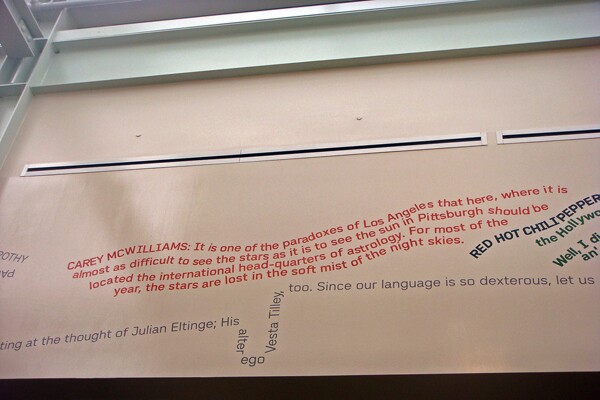 CAREY MCWILLIAMS: It is one of the paradoxes of Los Angeles that here, where it is
almost as difficult to see the stars as it is to see the sun in Pittsburgh should be
located the international head-quarters of astrology. For most of the
year, the stars are lost in the soft mist of the night skies.
RED HOT CHILI PEPPER
the Hollywo
Well, I di
an'
OTHY
PAR
ting at the thought of Julian Eltinge; His
alter
ego
Vesta Tilley,
too. Since our language is so dexterous, let us